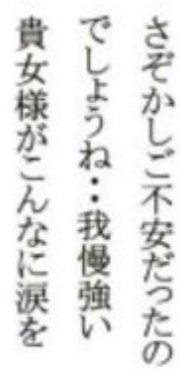 さぞかしご不安だったの
でしょうね‥我慢強い
貴女様がこんなに涙を